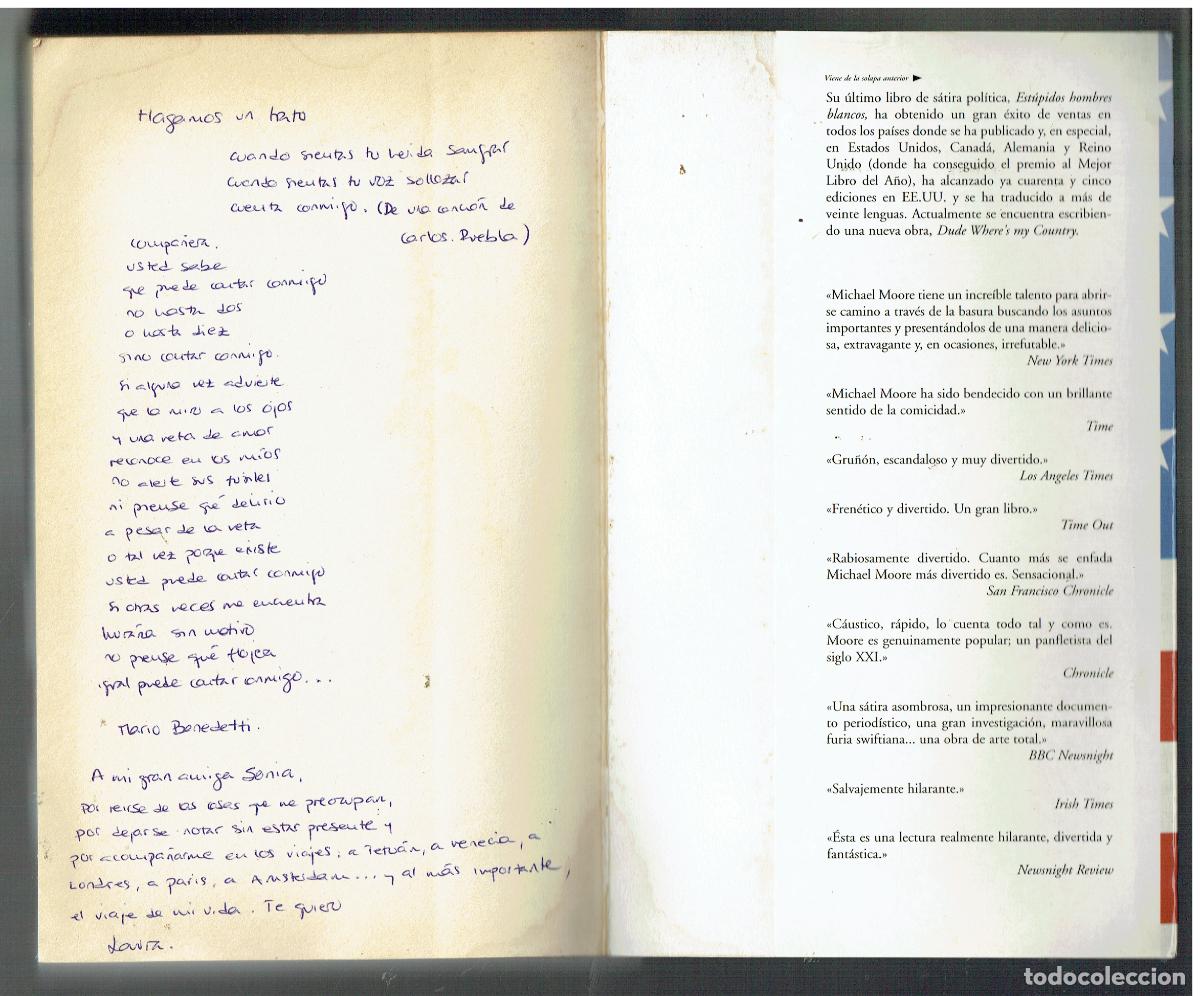 Hagamos un trato
cuando sientas tu herida sangrar
cuando sientas tu voz sollozar
cuenta conmigo. (De una canción de
Carlos Puebla)
Compañera.
usted sabe
que puede contar conmigo
no hasta dos
o hasta diez
sino contar conmigo.
si alguna vez advierte
que la miro a los ojos
y una veta de amor
reconoce en los míos
no alerte sus fusiles
ni piense qué delirio
a pesar de la veta
o tal vez porque existe
usted puede contar conmigo
si otras veces me encuentra
huraña sin motivo
no piense qué flojera
igual puede contar conmigo...
Mario Benedetti.
A mi gran amiga Sonia,
por reirse de las cosas que me preocupan,
por dejarse notar sin estar presente y
por acompañarme en los viajes; a Tetuán, a venecia, a
Londres, a parís, a Amsterdam... y al más importante,
el viaje de mi vida. Te quiero
Laura.
Viene de la solapa anterior ►
Su último libro de sátira política, Estúpidos hombres
blancos, ha obtenido un gran éxito de ventas en
todos los países donde se ha publicado y, en especial,
en Estados Unidos, Canadá, Alemania y Reino
Unido (donde ha conseguido el premio al Mejor
Libro del Año), ha alcanzado ya cuarenta y cinco
ediciones en EE.UU. y se ha traducido a más de
veinte lenguas. Actualmente se encuentra escribien-
do una nueva obra, Dude Where's my Country.
«Michael Moore tiene un increíble talento para abrir-
se camino a través de la basura buscando los asuntos
importantes y presentándolos de una manera delicio-
sa, extravagante y, en ocasiones, irrefutable.»
New York Times
«Michael Moore ha sido bendecido con un brillante
sentido de la comicidad.»
Time
«Gruñón, escandaloso y muy divertido.»
Los Angeles Times
«Frenético y divertido. Un gran libro.»
Time Out
«Rabiosamente divertido. Cuanto más se enfada
Michael Moore más divertido es. Sensacional.»
San Francisco Chronicle
«Cáustico, rápido, lo cuenta todo tal y como es.
Moore es genuinamente popular; un panfletista del
siglo XXI.»
Chronicle
«Una sátira asombrosa, un impresionante documen-
to periodístico, una gran investigación, maravillosa
furia swiftiana... una obra de arte total.»
BBC Newsnight
«Salvajemente hilarante.»
Irish Times
«Ésta es una lectura realmente hilarante, divertida y
fantástica.»
Newsnight Review
todocoleccion